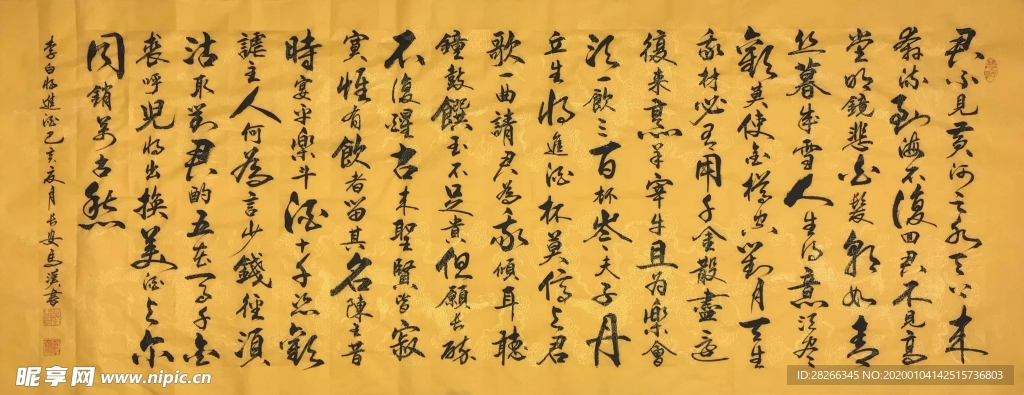 君不見黃河之水天上来
奔流到海不復回君不見高
堂明鏡悲白髮朝如青
丝暮成雪人生得意須尽
歡莫使金樽空對月天生
我材必有用千金散盡还
復来烹羊宰牛且为樂會
須一飲三百杯岑夫子丹
丘生将進酒杯莫停与君
歌一曲請君为我傾耳聽
鐘鼓饌玉不足貴但願長醉
不復醒古来聖賢皆寂
寞惟有飲者留其名陳王昔
時宴平樂斗酒十千恣歡
謔主人何為言少錢徑須
沽取對君酌五花馬千金
裘呼兒将出換美酒与尔
同銷萬古愁
李白将進酒己亥夏月長安
昵享网 www.nipic.cn
ID:28266345 NO:20200104142515736803